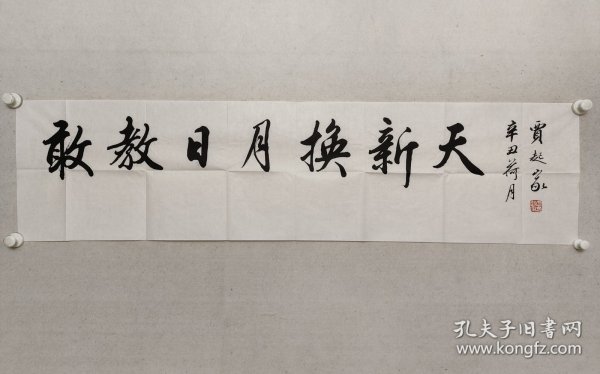 敢教日月换新天
辛丑荷月
賈起家
孔夫子旧书网
www.kongfz.com